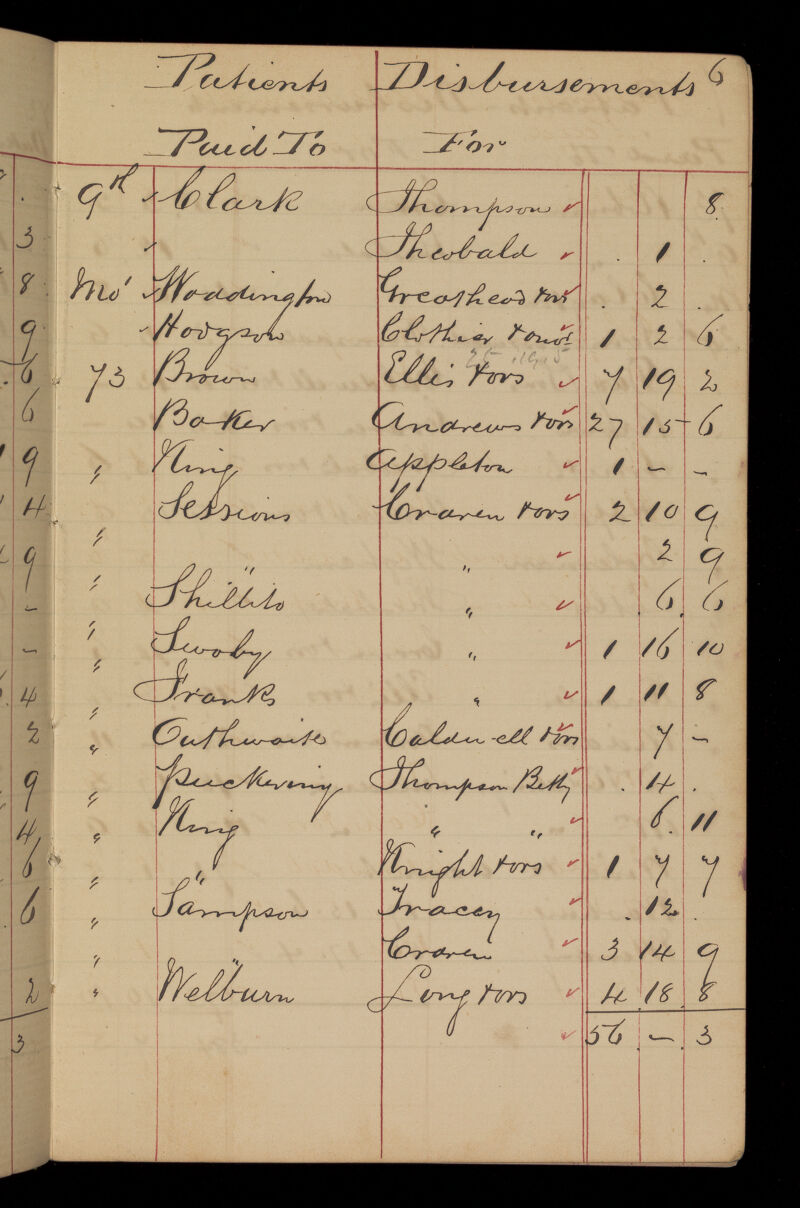 Patients Disbursements 6
Paid To For
9th Clark Thompson 8
" Theobald . 1 .
Mo' Waddington Greathead & ors . 2 .
Hodgson Clothier & anor 1 2 6
73 Brown Ellis & ors 7 19 2
Baker Andrews & ors 27 15 6
" King Appleton 1 – –
Sessions Craven & ors 2 10 9
" " " 2 9
" Shillito " 6 6
" Swaby " 1 16 10
" Franks " 1 11 8
" Outhwaite Caldwell & ors 7 –
" Puckering Thompson Betty . 4 .
" King " " 6 11
" " Knight & ors 1 7 7
" Sampson Tracey . 12 .
" " Craven 3 14 9
" Welburn Long & ors 4 18 8
56 – 3
3
8
9
6
6
9
4
9
–
–
4
2
9
4
6
6
2
3